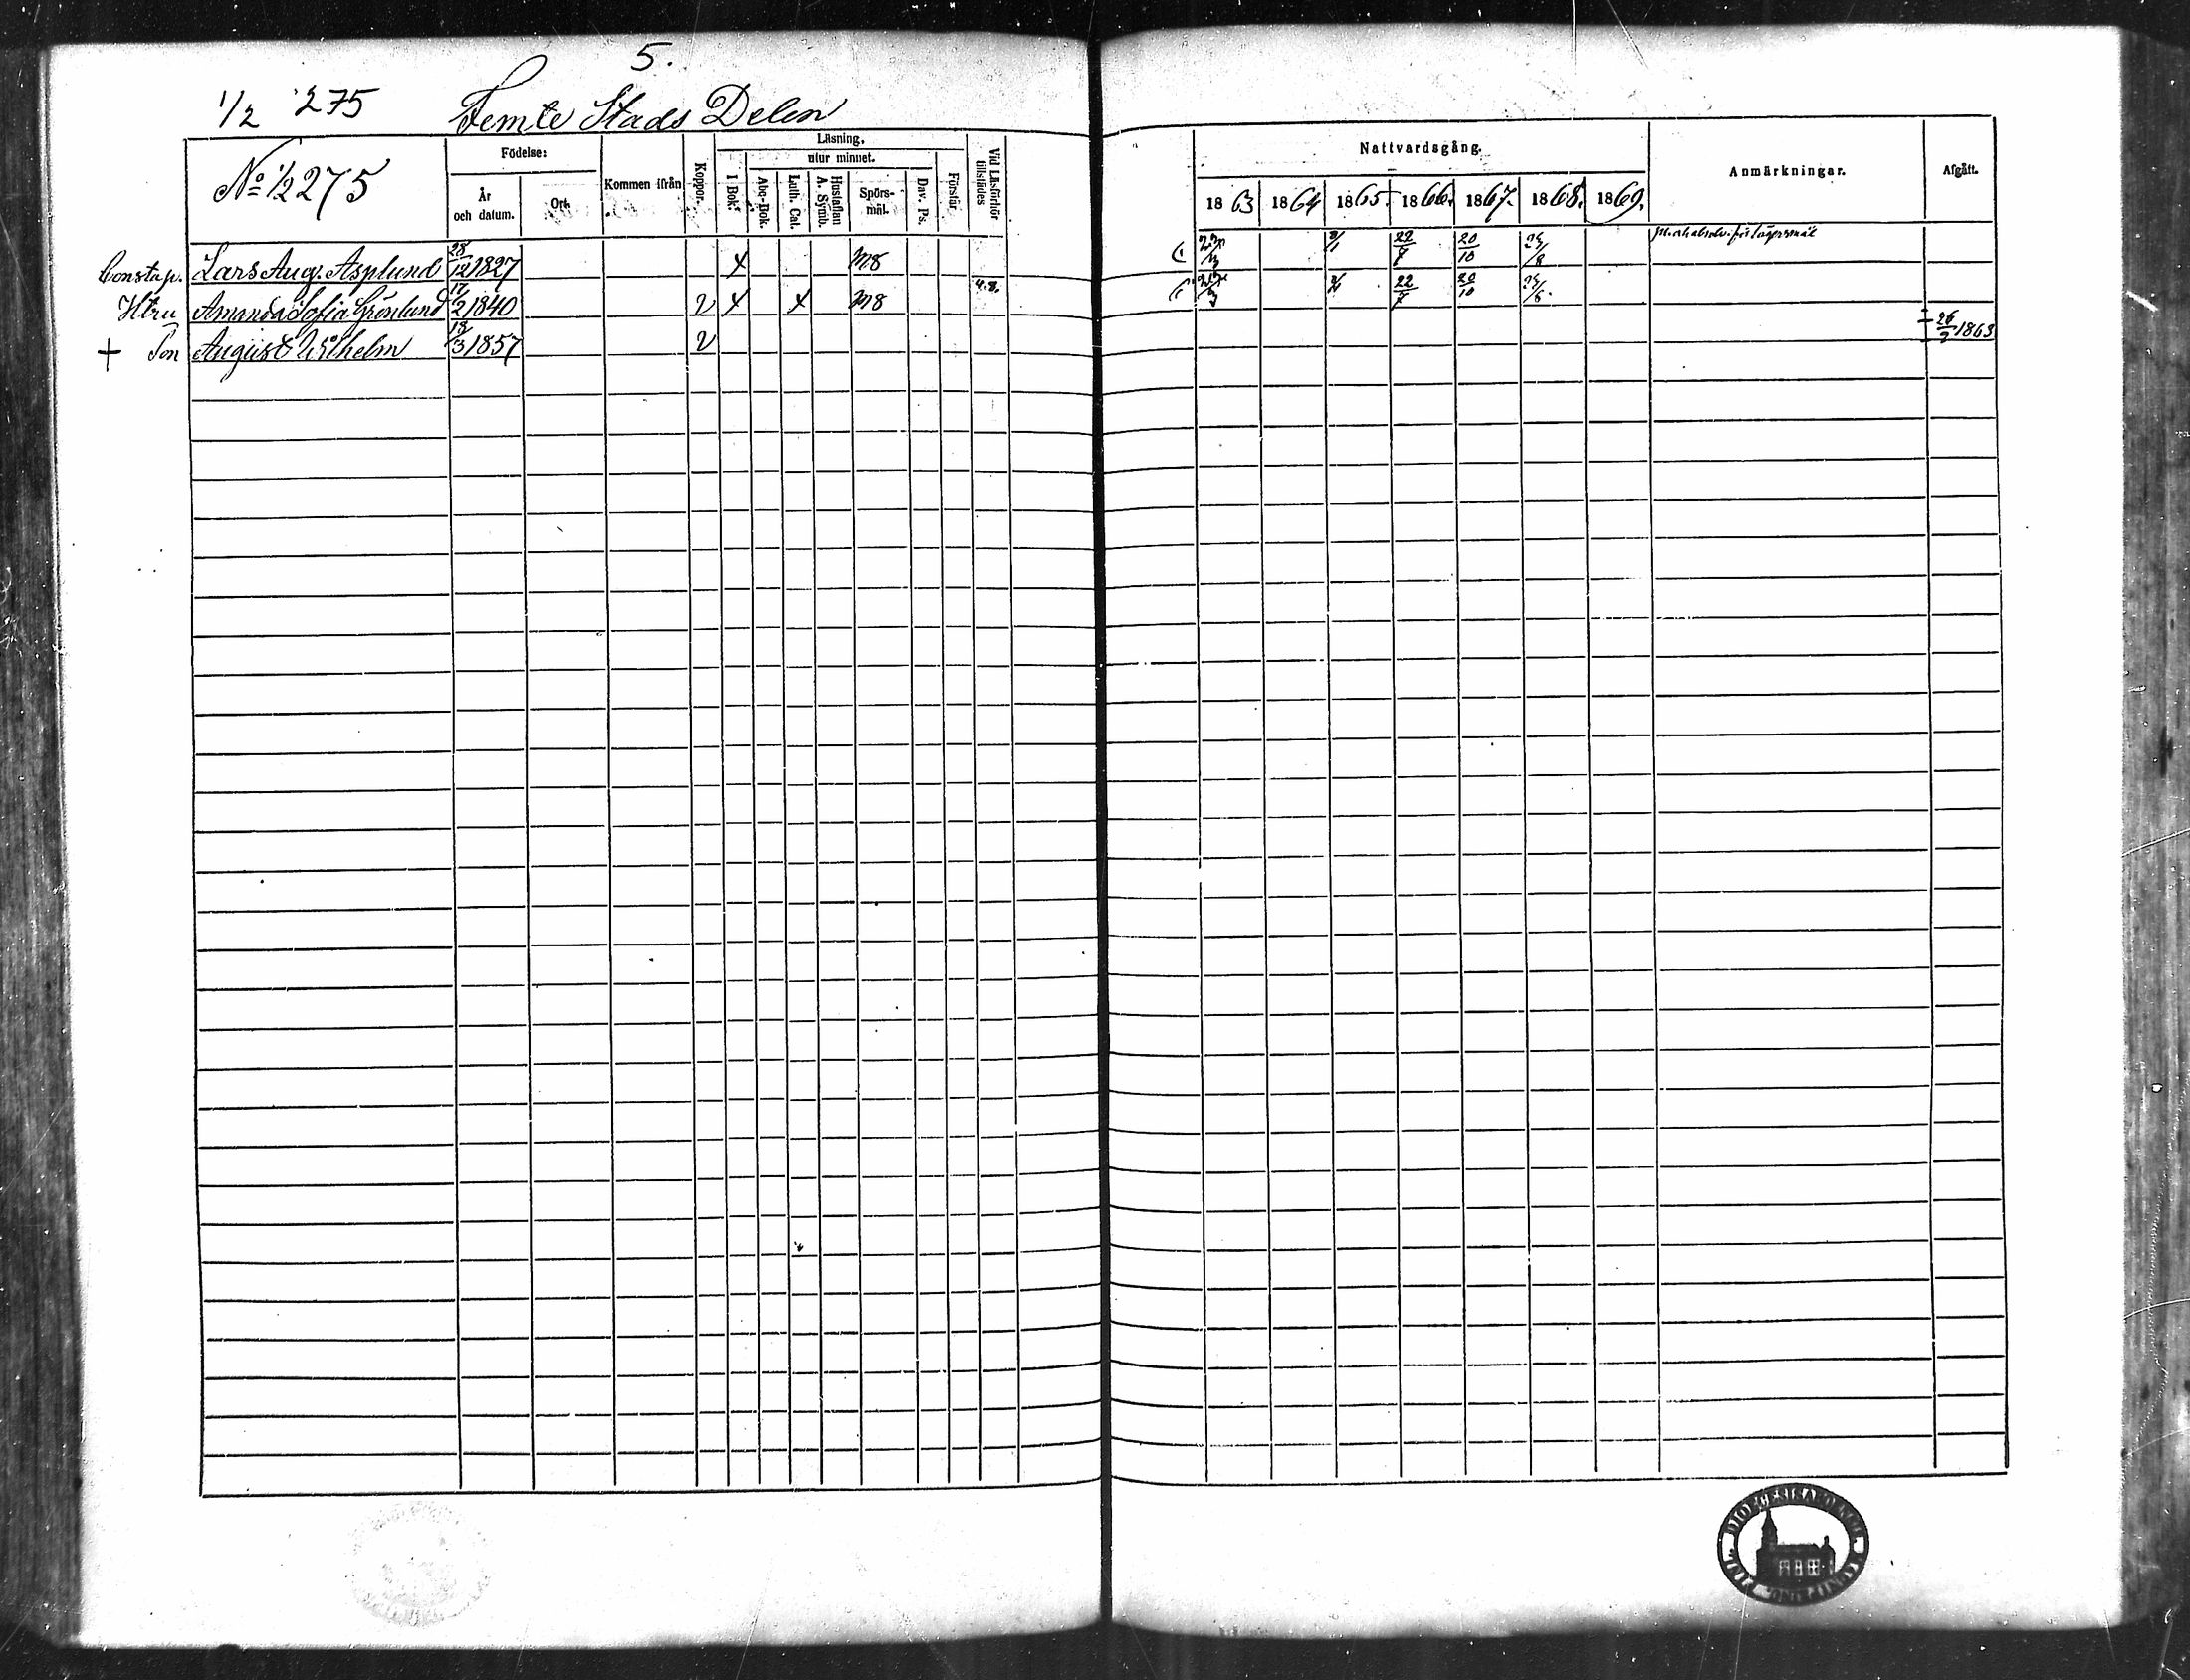 5.
1/2 275 Femte Stads Delen
No 1/2 275
Födelse:
År och datum.
Ort.
Kommen ifrån
Koppor.
Läsning.
utur minnet.
I Bok.
Abc-Bok.
Luth. Cat.
Hustaflan A. Symb.
Spörs-mål.
Dav. Ps.
Förstår
Vid Läsförhör tillstädes
Nattvardsgång.
1863 1864 1865. 1866. 1867. 1868. 1869.
Anmärkningar.
Afgått.
Constap. Lars Aug. Asplund 28/12 1827 x m8 22/7 20/10
Htru Amanda Sofia Grönlund 17/2 1840 v x x m8 4.8. 22/7 20/10
+ Son August Wilhelm 18/3 1857 v 26/3 1863